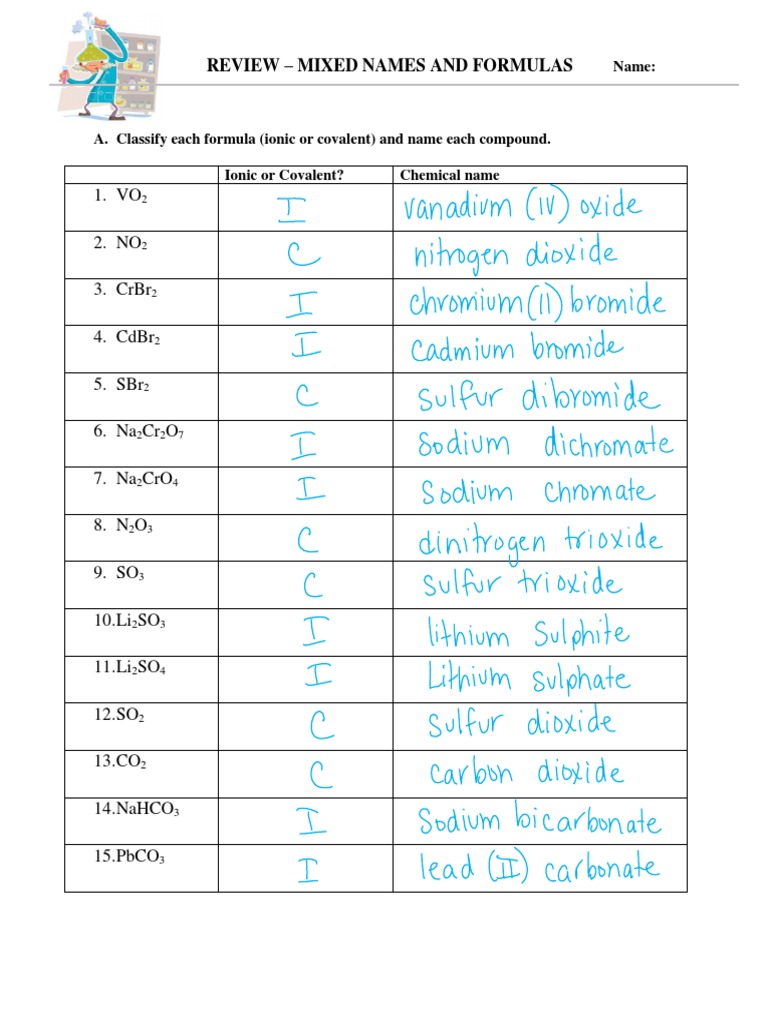 REVIEW – MIXED NAMES AND FORMULAS Name:
A. Classify each formula (ionic or covalent) and name each compound.
Ionic or Covalent? Chemical name
1. VO₂ I vanadium (IV) oxide
2. NO₂ C nitrogen dioxide
3. CrBr₂ I chromium (II) bromide
4. CdBr₂ I Cadmium bromide
5. SBr₂ C sulfur dibromide
6. Na₂Cr₂O₇ I Sodium dichromate
7. Na₂CrO₄ I Sodium chromate
8. N₂O₃ C dinitrogen trioxide
9. SO₃ C sulfur trioxide
10.Li₂SO₃ I lithium Sulphite
11.Li₂SO₄ I Lithium sulphate
12.SO₂ C Sulfur dioxide
13.CO₂ C carbon dioxide
14.NaHCO₃ I Sodium bicarbonate
15.PbCO₃ I lead (II) carbonate